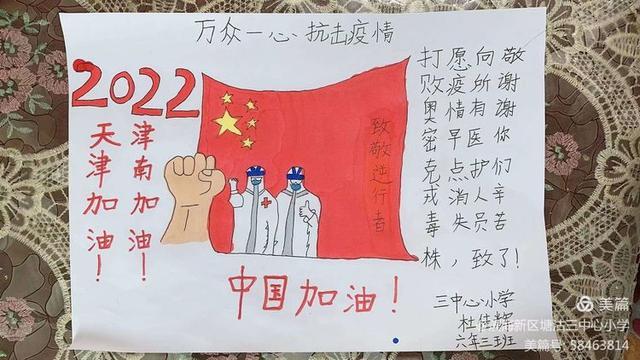 万众一心、抗击疫情
2022
天津加油！
津南加油！
致敬逆行者
打败奥密克戎毒株
愿疫情早点消失，
向所有医护人员致
敬谢谢你们辛苦了！
中国加油！
三中心小学
杜佳辉
六年三班
美篇
新区塘沽三中心小学
美篇号: 58463814